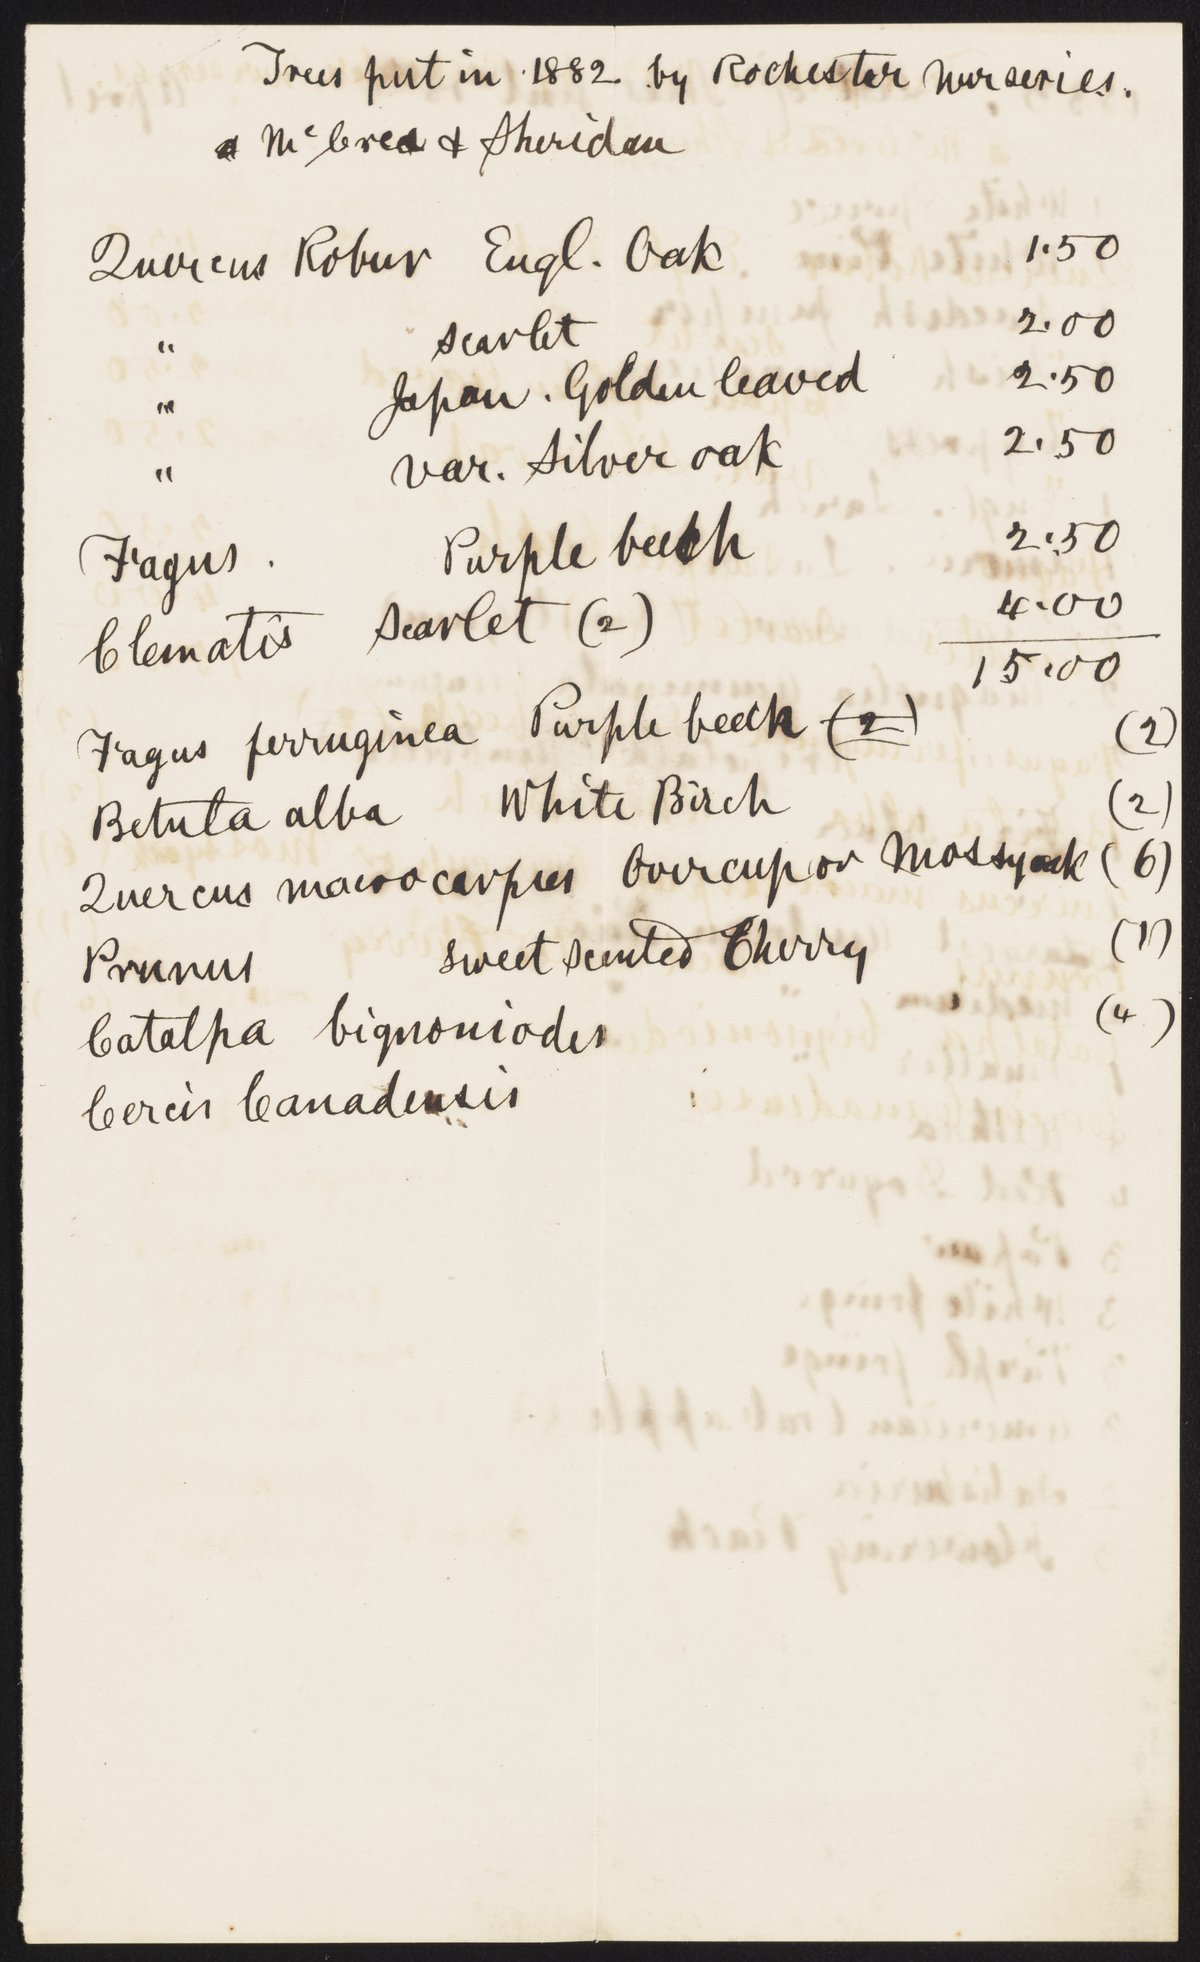 Trees put in 1882 by Rochester Nurseries.
McCrea & Sheridan
Quercus Robur Engl. Oak 1.50
" scarlet 2.00
" Japan. Golden leaved 2.50
" var. Silver oak 2.50
Fagus. Purple beech 2.50
Clematis Scarlet (2) 4.00
15.00
Fagus ferruginea Purple beech (2) (2)
Betula alba White Birch (2)
Quercus macrocarpus Overcup or Mossy oak (6)
Prunus sweet scented Cherry (1)
Catalpa bignoniodes (4)
Cercis Canadensis